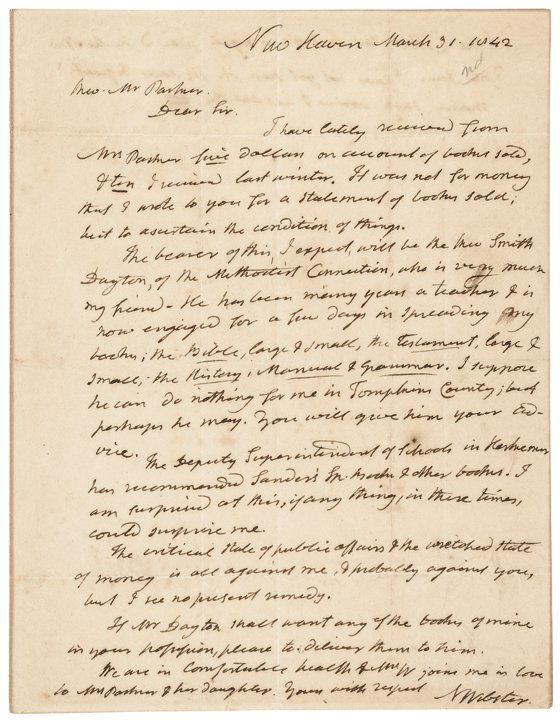 New Haven March 31. 1842
Revd Mr Parkner.
Dear Sir.
I have lately received from
Mrs Parkner five dollars on account of books sold,
& ten I received last winter. It was not for money
that I wrote to you for a statement of books sold;
but to ascertain the condition of things.
The bearer of this, I expect, will be the Rev Smith
Dayton, of the Methodist Connection, who is very much
my friend - He has been many years a teacher & is
now engaged for a few days in spreading my
books; the Bible, large & small, the testament, large &
small; the History, Manual & Grammar. I suppose
he can do nothing for me in Tompkins County; but
perhaps he may. You will give him your ad-
vice.
The Deputy Superintendent of Schools in Herkimer
has recommended Sanders Sp. book & other books. I
am surprised at this, if any thing, in these times,
could surprise me.
The critical state of public affairs & the wretched state
of money is all against me, & probably against you,
but I see no present remedy.
If Mr Dayton shall want any of the books of mine
in your possession, please to deliver them to him.
We are in comfortable health & Mrs W joins me in love
to Mrs Parkner & her daughter. Yours with respect
N Webster.